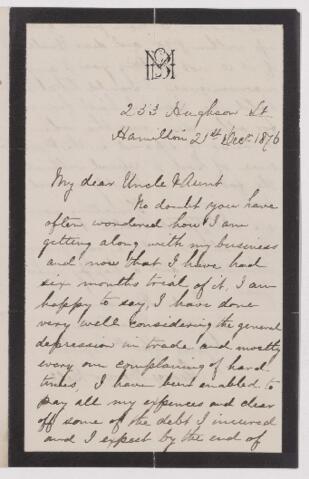 233 Hughson St
Hamilton 21st Decr 1876
My dear Uncle & Aunt
No doubt you have
often wondered how I am
getting along with my business
and now that I have had
six months trial of it, I am
happy to say, I have done
very well considering the general
depression in trade and mostly
every one complaining of hard
times, I have been enabled to
pay all my expences and clear
off some of the debt I incured
and I expect by the end of